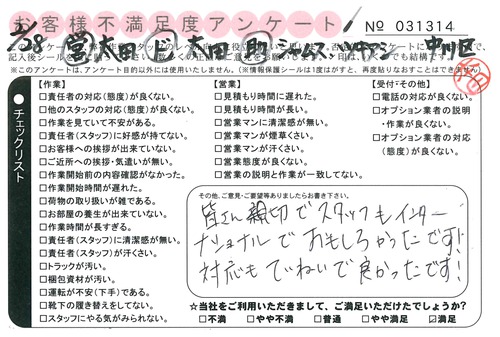 お客様不満足度アンケート
№ 031314
2/28 営 太田 太田 助 ジェームス 中川区
記入後シールを
※このアンケートは、アンケート目的以外には使用致しません。(※情報保護シールは1度はがすと、再度貼りなおすことはできません)
チェックリスト
【作業】
□責任者の対応(態度)が良くない。
□他のスタッフの対応(態度)が良くない。
□作業を見ていて不安がある。
□責任者(スタッフ)に好感が持てない。
□お客様への挨拶が出来ていない。
□ご近所への挨拶・気遣いが無い。
□作業開始前の内容確認がなかった。
□作業開始時間が遅れた。
□荷物の取り扱いが雑である。
□お部屋の養生が出来ていない。
□作業時間が長すぎる。
□責任者(スタッフ)に清潔感が無い。
□責任者(スタッフ)が汗くさい。
□トラックが汚い。
□梱包資材が汚い。
□運転が不安(下手)である。
□靴下の履き替えをしてない。
□スタッフにやる気がみられない。
【営業】
□見積もり時間に遅れた。
□見積もり時間が長い。
□営業マンに清潔感が無い。
□営業マンが煙草くさい。
□営業マンが汗くさい。
□営業態度が良くない。
□営業の説明と作業が一致してない。
【受付・その他】
□電話の対応が良くない。
□オプション業者の説明
・作業が良くない。
□オプション業者の対応
(態度)が良くない。
その他、ご意見・ご要望等ありましたらお書き下さい。
皆さん親切でスタッフもインター
ナショナルでおもしろかったです!
対応もていねいで良かったです!
☆当社をご利用いただきまして、ご満足いただけたでしょうか?
□不満 □やや不満 □普通 □やや満足 ☑満足